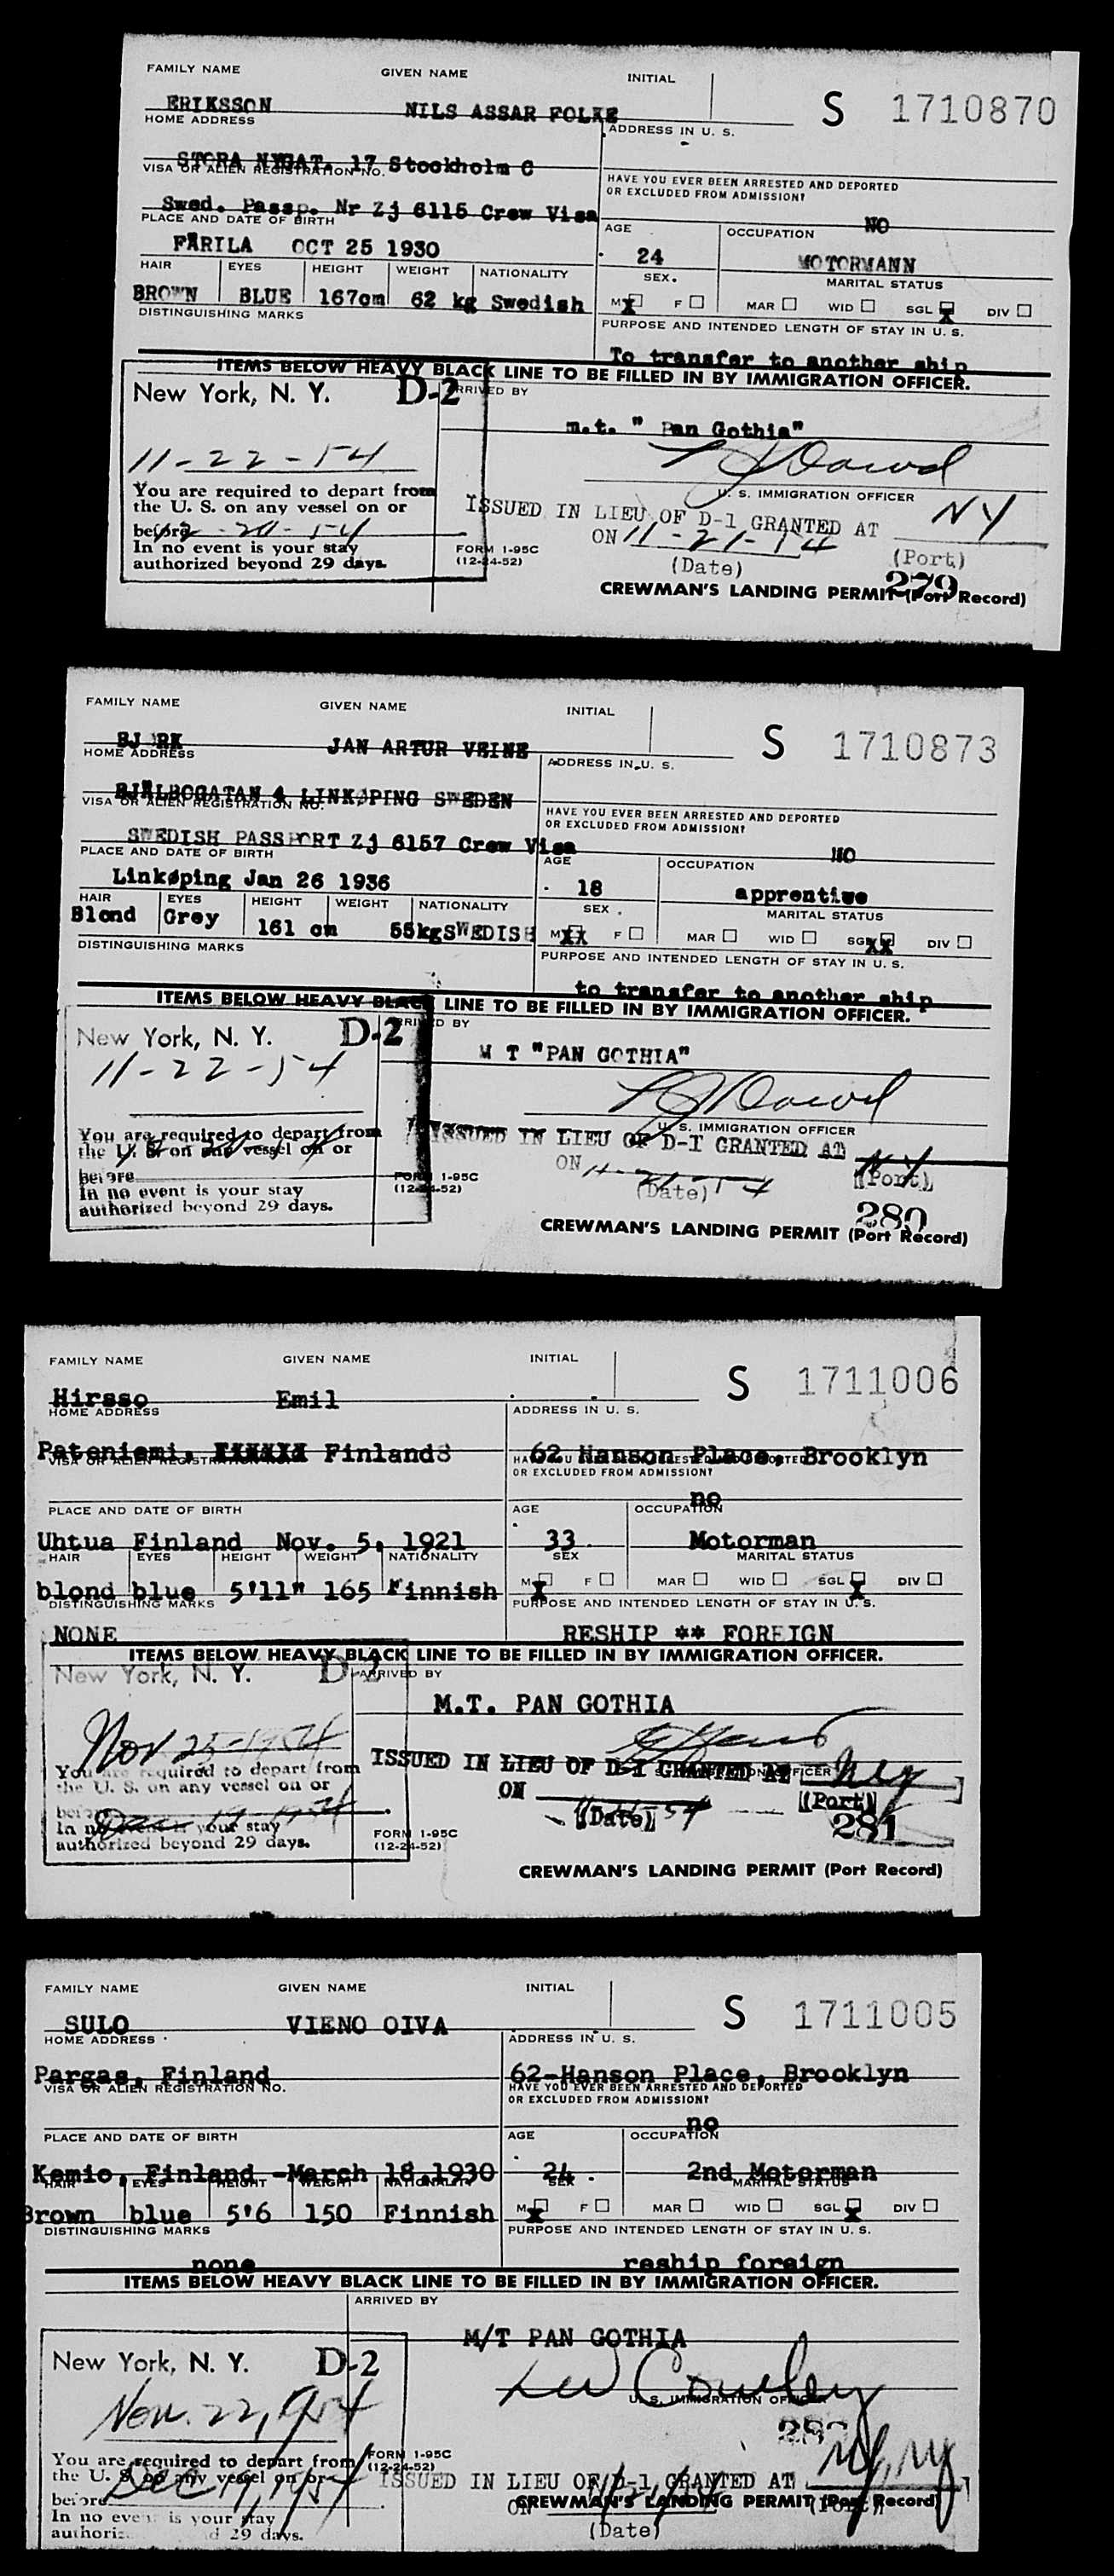 FAMILY NAME GIVEN NAME INITIAL
ERIKSSON NILS ASSAR FOLKE S 1710870
HOME ADDRESS ADDRESS IN U. S.
STORA NYGAT. 17 Stockholm C
VISA OR ALIEN REGISTRATION NO. HAVE YOU EVER BEEN ARRESTED AND DEPORTED
OR EXCLUDED FROM ADMISSION?
Swed. Passp. Nr Zj 6115 Crew Visa NO
PLACE AND DATE OF BIRTH AGE OCCUPATION
FÄRILA OCT 25 1930 24 MOTORMANN
HAIR EYES HEIGHT WEIGHT NATIONALITY SEX. MARITAL STATUS
BROWN BLUE 167cm 62 kg Swedish M X F MAR WID SGL X DIV
DISTINGUISHING MARKS PURPOSE AND INTENDED LENGTH OF STAY IN U. S.
To transfer to another ship
ITEMS BELOW HEAVY BLACK LINE TO BE FILLED IN BY IMMIGRATION OFFICER.
New York, N. Y. D-2 ARRIVED BY
m.t. " Pan Gothia"
11-22-54
U. S. IMMIGRATION OFFICER
You are required to depart from
the U. S. on any vessel on or
before 12-20-54
In no event is your stay
authorized beyond 29 days.
ISSUED IN LIEU OF D-1 GRANTED AT NY
ON 11-21-54 (Port)
(Date)
FORM I-95C
(12-24-52)
279
CREWMAN'S LANDING PERMIT (Port Record)
FAMILY NAME GIVEN NAME INITIAL
BJ RK JAN ARTUR VEINE S 1710873
HOME ADDRESS ADDRESS IN U. S.
BJÄLBOGATAN 4 LINKØPING SWEDEN
VISA OR ALIEN REGISTRATION NO. HAVE YOU EVER BEEN ARRESTED AND DEPORTED
OR EXCLUDED FROM ADMISSION?
SWEDISH PASSPORT Zj 6157 Crew Visa NO
PLACE AND DATE OF BIRTH AGE OCCUPATION
Linkøping Jan 26 1936 18 apprentive
HAIR EYES HEIGHT WEIGHT NATIONALITY SEX. MARITAL STATUS
Blond Grey 161 cm 55kg SWEDISH M XX F MAR WID SGL XX DIV
DISTINGUISHING MARKS PURPOSE AND INTENDED LENGTH OF STAY IN U. S.
to transfer to another ship
ITEMS BELOW HEAVY BLACK LINE TO BE FILLED IN BY IMMIGRATION OFFICER.
New York, N. Y. D-2 ARRIVED BY
M T "PAN GOTHIA"
11-22-54
U. S. IMMIGRATION OFFICER
You are required to depart from
the U. S. on any vessel on or
before
In no event is your stay
authorized beyond 29 days.
ISSUED IN LIEU OF D-1 GRANTED AT NY
ON 11-21-54 (Port)
(Date)
FORM I-95C
(12-24-52)
280
CREWMAN'S LANDING PERMIT (Port Record)
FAMILY NAME GIVEN NAME INITIAL
Hirsso Emil S 1711006
HOME ADDRESS ADDRESS IN U. S.
Pateniemi, Finland 62 Hanson Place, Brooklyn
VISA OR ALIEN REGISTRATION NO. HAVE YOU EVER BEEN ARRESTED AND DEPORTED
OR EXCLUDED FROM ADMISSION?
no
PLACE AND DATE OF BIRTH AGE OCCUPATION
Uhtua Finland Nov. 5, 1921 33 Motorman
HAIR EYES HEIGHT WEIGHT NATIONALITY SEX MARITAL STATUS
blond blue 5'11" 165 Finnish M X F MAR WID SGL X DIV
DISTINGUISHING MARKS PURPOSE AND INTENDED LENGTH OF STAY IN U. S.
NONE RESHIP ** FOREIGN
ITEMS BELOW HEAVY BLACK LINE TO BE FILLED IN BY IMMIGRATION OFFICER.
New York, N. Y. D-2 ARRIVED BY
M.T. PAN GOTHIA
Nov 25-1954
U. S. IMMIGRATION OFFICER
You are required to depart from
the U. S. on any vessel on or
before Dec 19-1954
In no event is your stay
authorized beyond 29 days.
ISSUED IN LIEU OF D-1 GRANTED AT
ON (Port)
(Date)
FORM I-95C
(12-24-52)
281
CREWMAN'S LANDING PERMIT (Port Record)
FAMILY NAME GIVEN NAME INITIAL
SULO VIENO OIVA S 1711005
HOME ADDRESS ADDRESS IN U. S.
Pargas, Finland 62-Hanson Place, Brooklyn
VISA OR ALIEN REGISTRATION NO. HAVE YOU EVER BEEN ARRESTED AND DEPORTED
OR EXCLUDED FROM ADMISSION?
no
PLACE AND DATE OF BIRTH AGE OCCUPATION
Kemio, Finland -March 18.1930 24 2nd Motorman
HAIR EYES HEIGHT WEIGHT NATIONALITY SEX MARITAL STATUS
Brown blue 5'6 150 Finnish M X F MAR WID SGL X DIV
DISTINGUISHING MARKS PURPOSE AND INTENDED LENGTH OF STAY IN U. S.
none reship foreign
ITEMS BELOW HEAVY BLACK LINE TO BE FILLED IN BY IMMIGRATION OFFICER.
ARRIVED BY
M/T PAN GOTHIA
New York, N. Y. D-2
Nov. 22, 1954
U. S. IMMIGRATION OFFICER
You are required to depart from
the U. S. on any vessel on or
before Dec 19, 1954
In no event is your stay
authorized beyond 29 days.
FORM I-95C
(12-24-52)
ISSUED IN LIEU OF D-1 GRANTED AT NY, NY
ON (Port)
CREWMAN'S LANDING PERMIT (Port Record)
(Date)